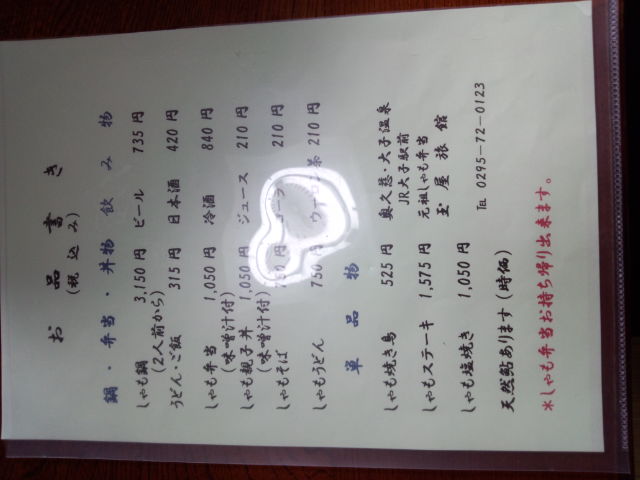 お品書き
(税込み)
鍋・弁当・丼物
しゃも鍋 3,150円
(2人前から)
うどん・ご飯 315円
しゃも弁当 1,050円
(味噌汁付)
しゃも親子丼 1,050円
(味噌汁付)
しゃもそば 円
しゃもうどん 750円
飲み物
ビール 735円
日本酒 420円
冷酒 840円
ジュース 210円
210円
ウーロン茶 210円
単品物
しゃも焼き鳥 525円
しゃもステーキ 1,575円
しゃも塩焼き 1,050円
天然鮎あります(時価)
*しゃも弁当お持ち帰り出来ます。
奥久慈・大子温泉
JR大子駅前
元祖しゃも弁当
玉屋旅館
℡ 0295-72-0123